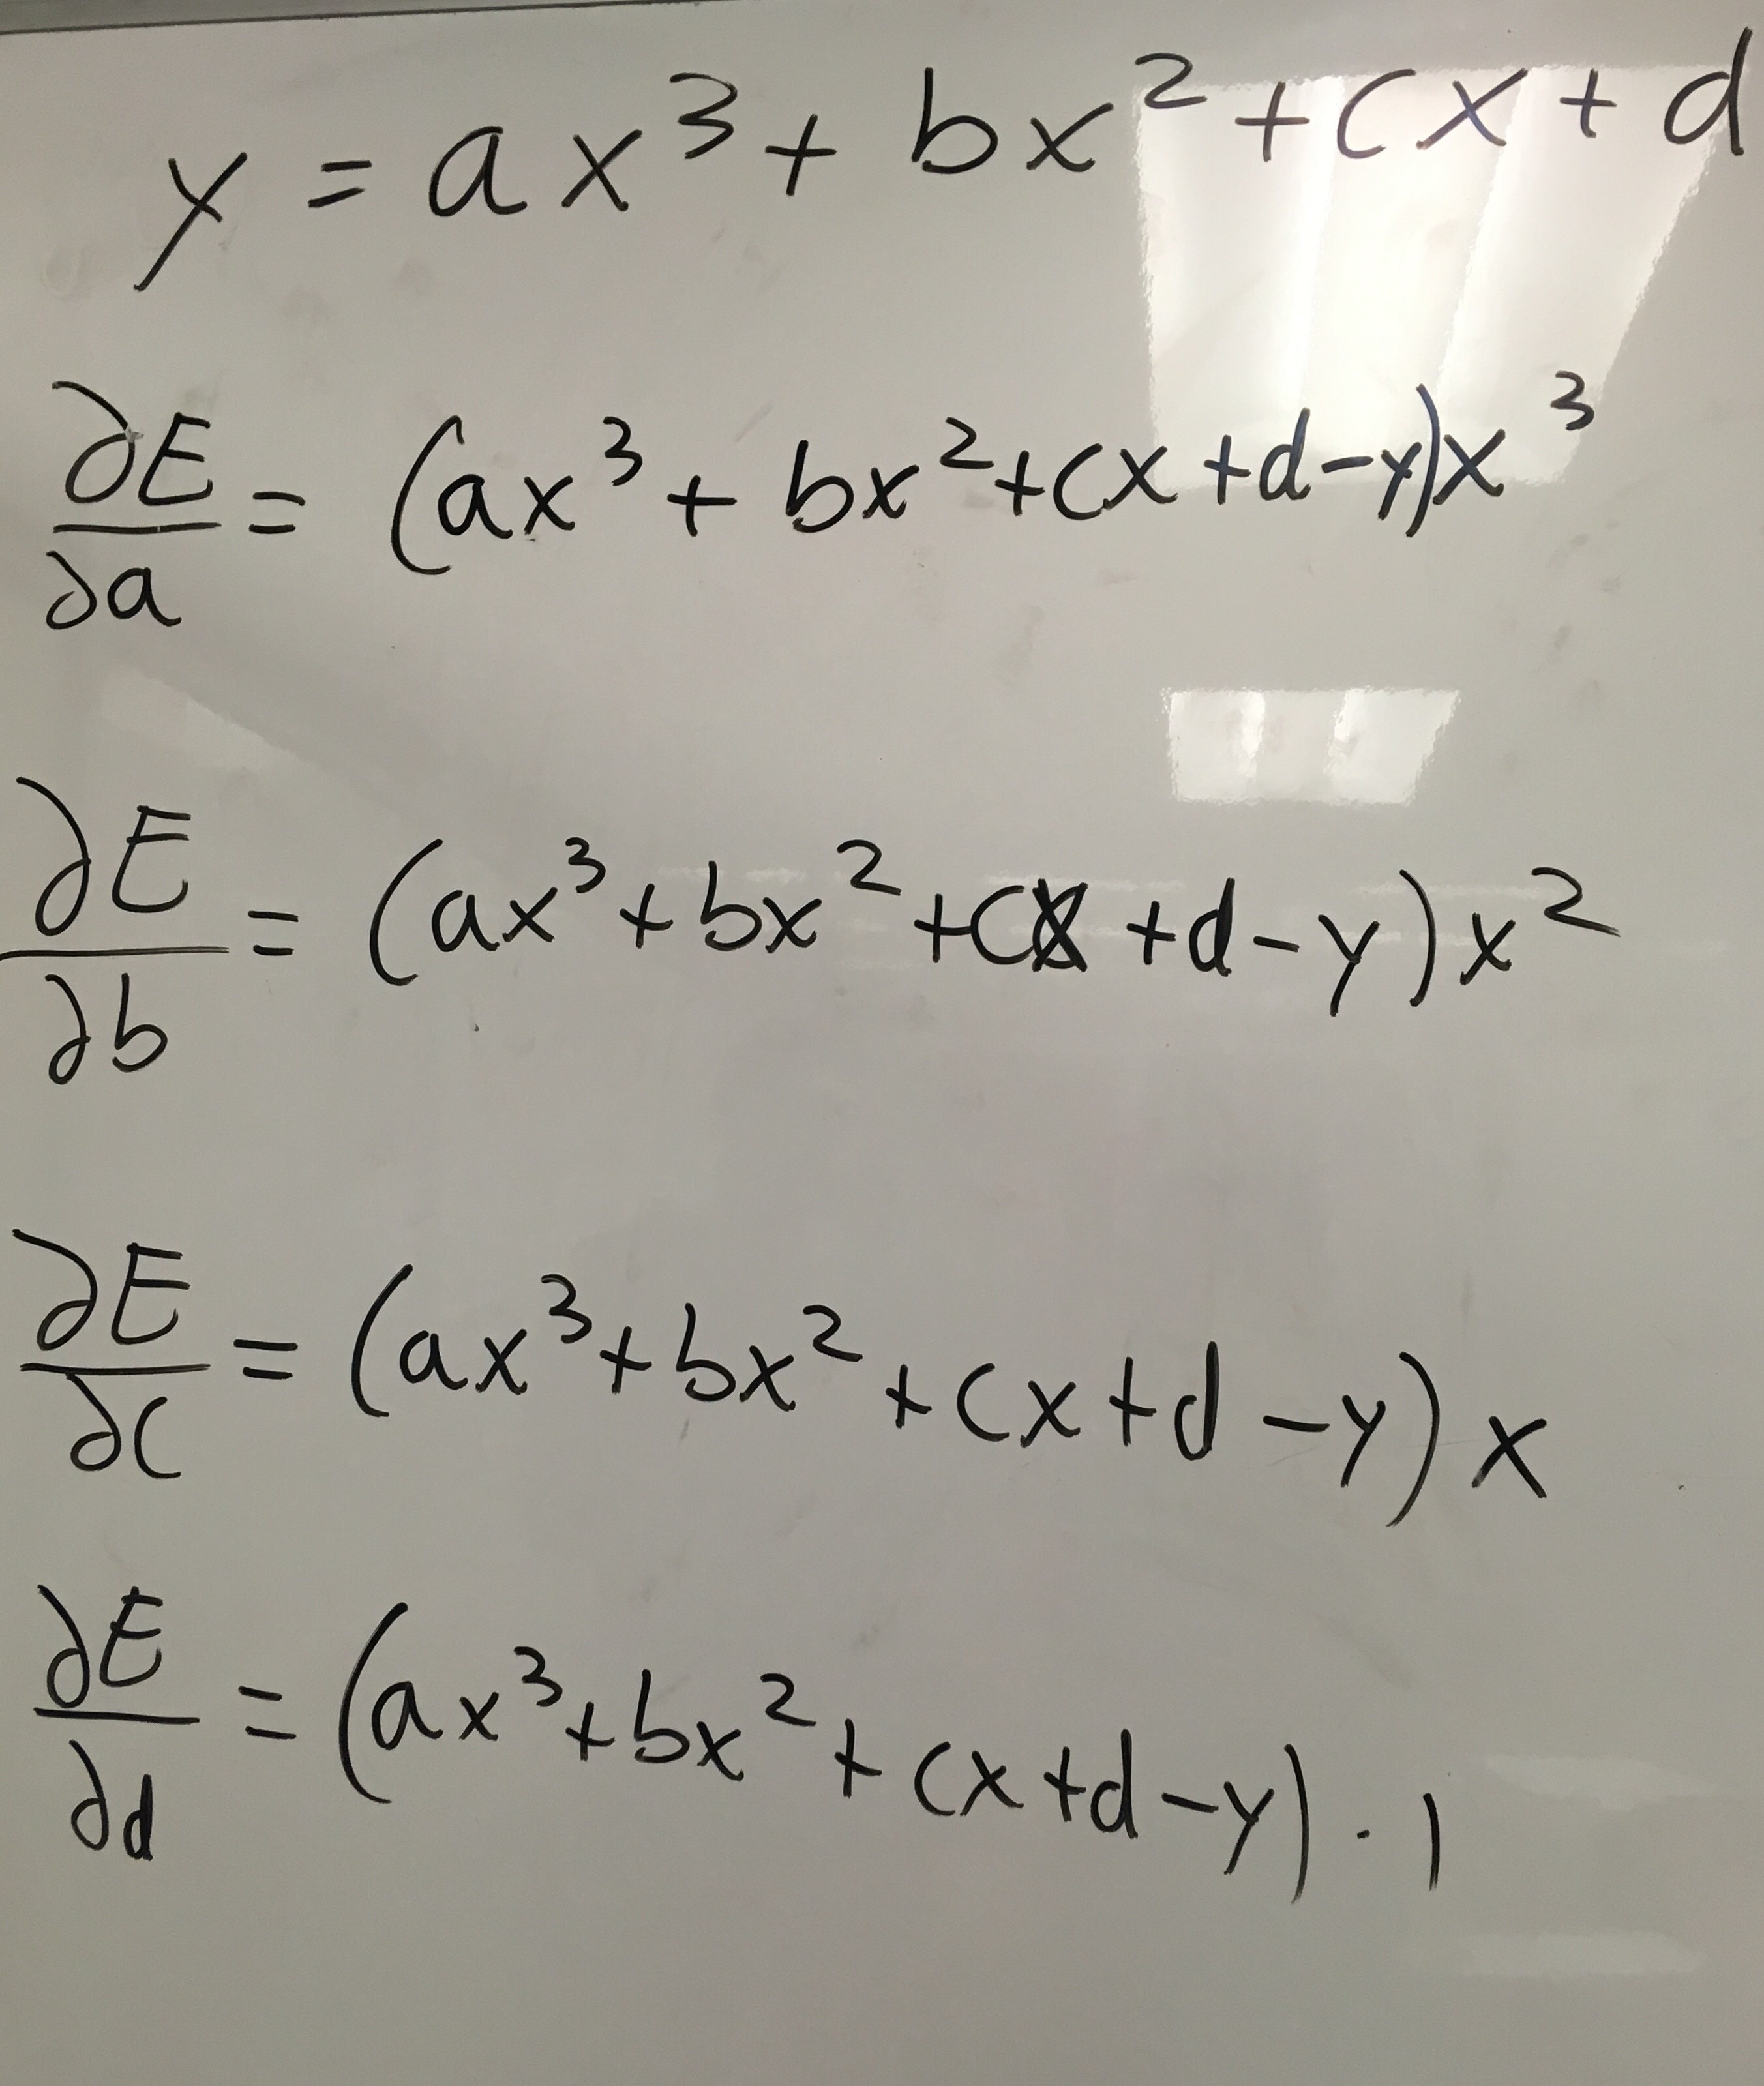 y = ax³ + bx² + cx + d
∂E/∂a = (ax³ + bx² + cx + d - y)x³
∂E/∂b = (ax³ + bx² + cx + d - y)x²
∂E/∂c = (ax³ + bx² + cx + d - y)x
∂E/∂d = (ax³ + bx² + cx + d - y) · 1